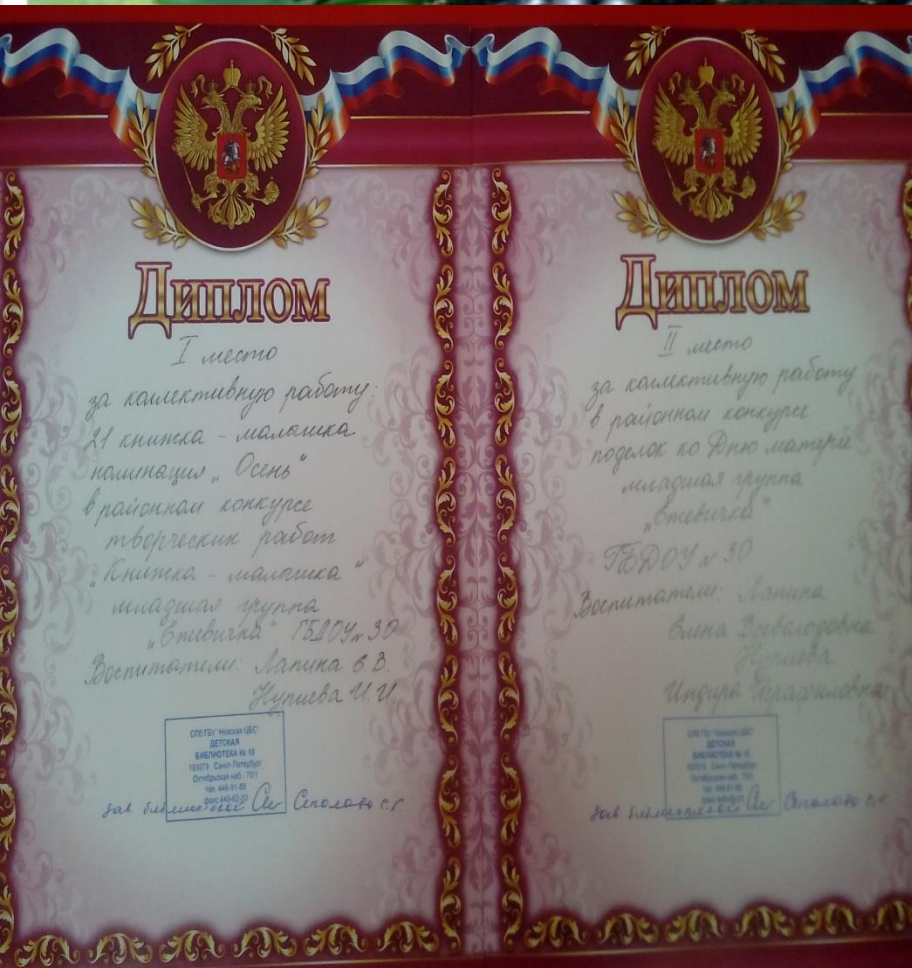 Диплом
I место
за коллективную работу:
21 книжка - малышка
номинация „Осень"
в районном конкурсе
творческих работ
„Книжка - малышка"
младшая группа
ГБДОУ № 30
Воспитатели: Лапина Е В.
И. И.
СПб ГБУ "Невская ЦБС"
ДЕТСКАЯ
БИБЛИОТЕКА № 10
193079, Санкт-Петербург
Октябрьская наб., 70/1
тел. 446-91-86
факс 446-62-33
Зав. библиотекой
Диплом
II место
за коллективную работу
в районном конкурсе
поделок ко Дню матери
младшая группа
ГБДОУ № 30
Воспитатели: Лапина
Елена Всеволодовна
Индира Исрафиловна
СПб ГБУ "Невская ЦБС"
ДЕТСКАЯ
БИБЛИОТЕКА № 10
193079, Санкт-Петербург
Октябрьская наб., 70/1
тел. 446-91-86
Зав. библиотекой